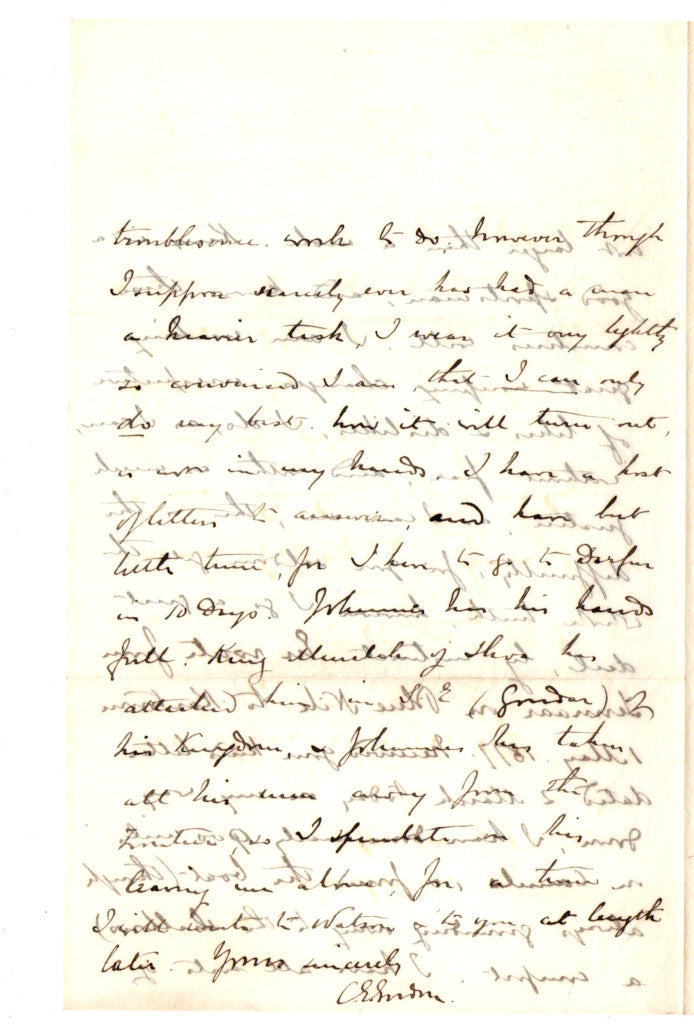 troublesome work to do. however though
I suppose scarcely ever has had a man
a heavier task, I wear it very lightly
so convinced I am that I can only
do my best. how it will turn out,
is not in my hands. I have a host
of letters to answer, and have but
little time, for I have to go to Darfur
in 10 Days. Johannes has his hands
full. King Menelek of Shoa has
attacked him in S.E (Gondar) of
his Kingdom, & Johannes has taken
all his men away from the
frontier, so I speculate on his
leaving me alone, for a time
I will write to Watson & to you at length
later. Yours sincerely
C E Gordon.